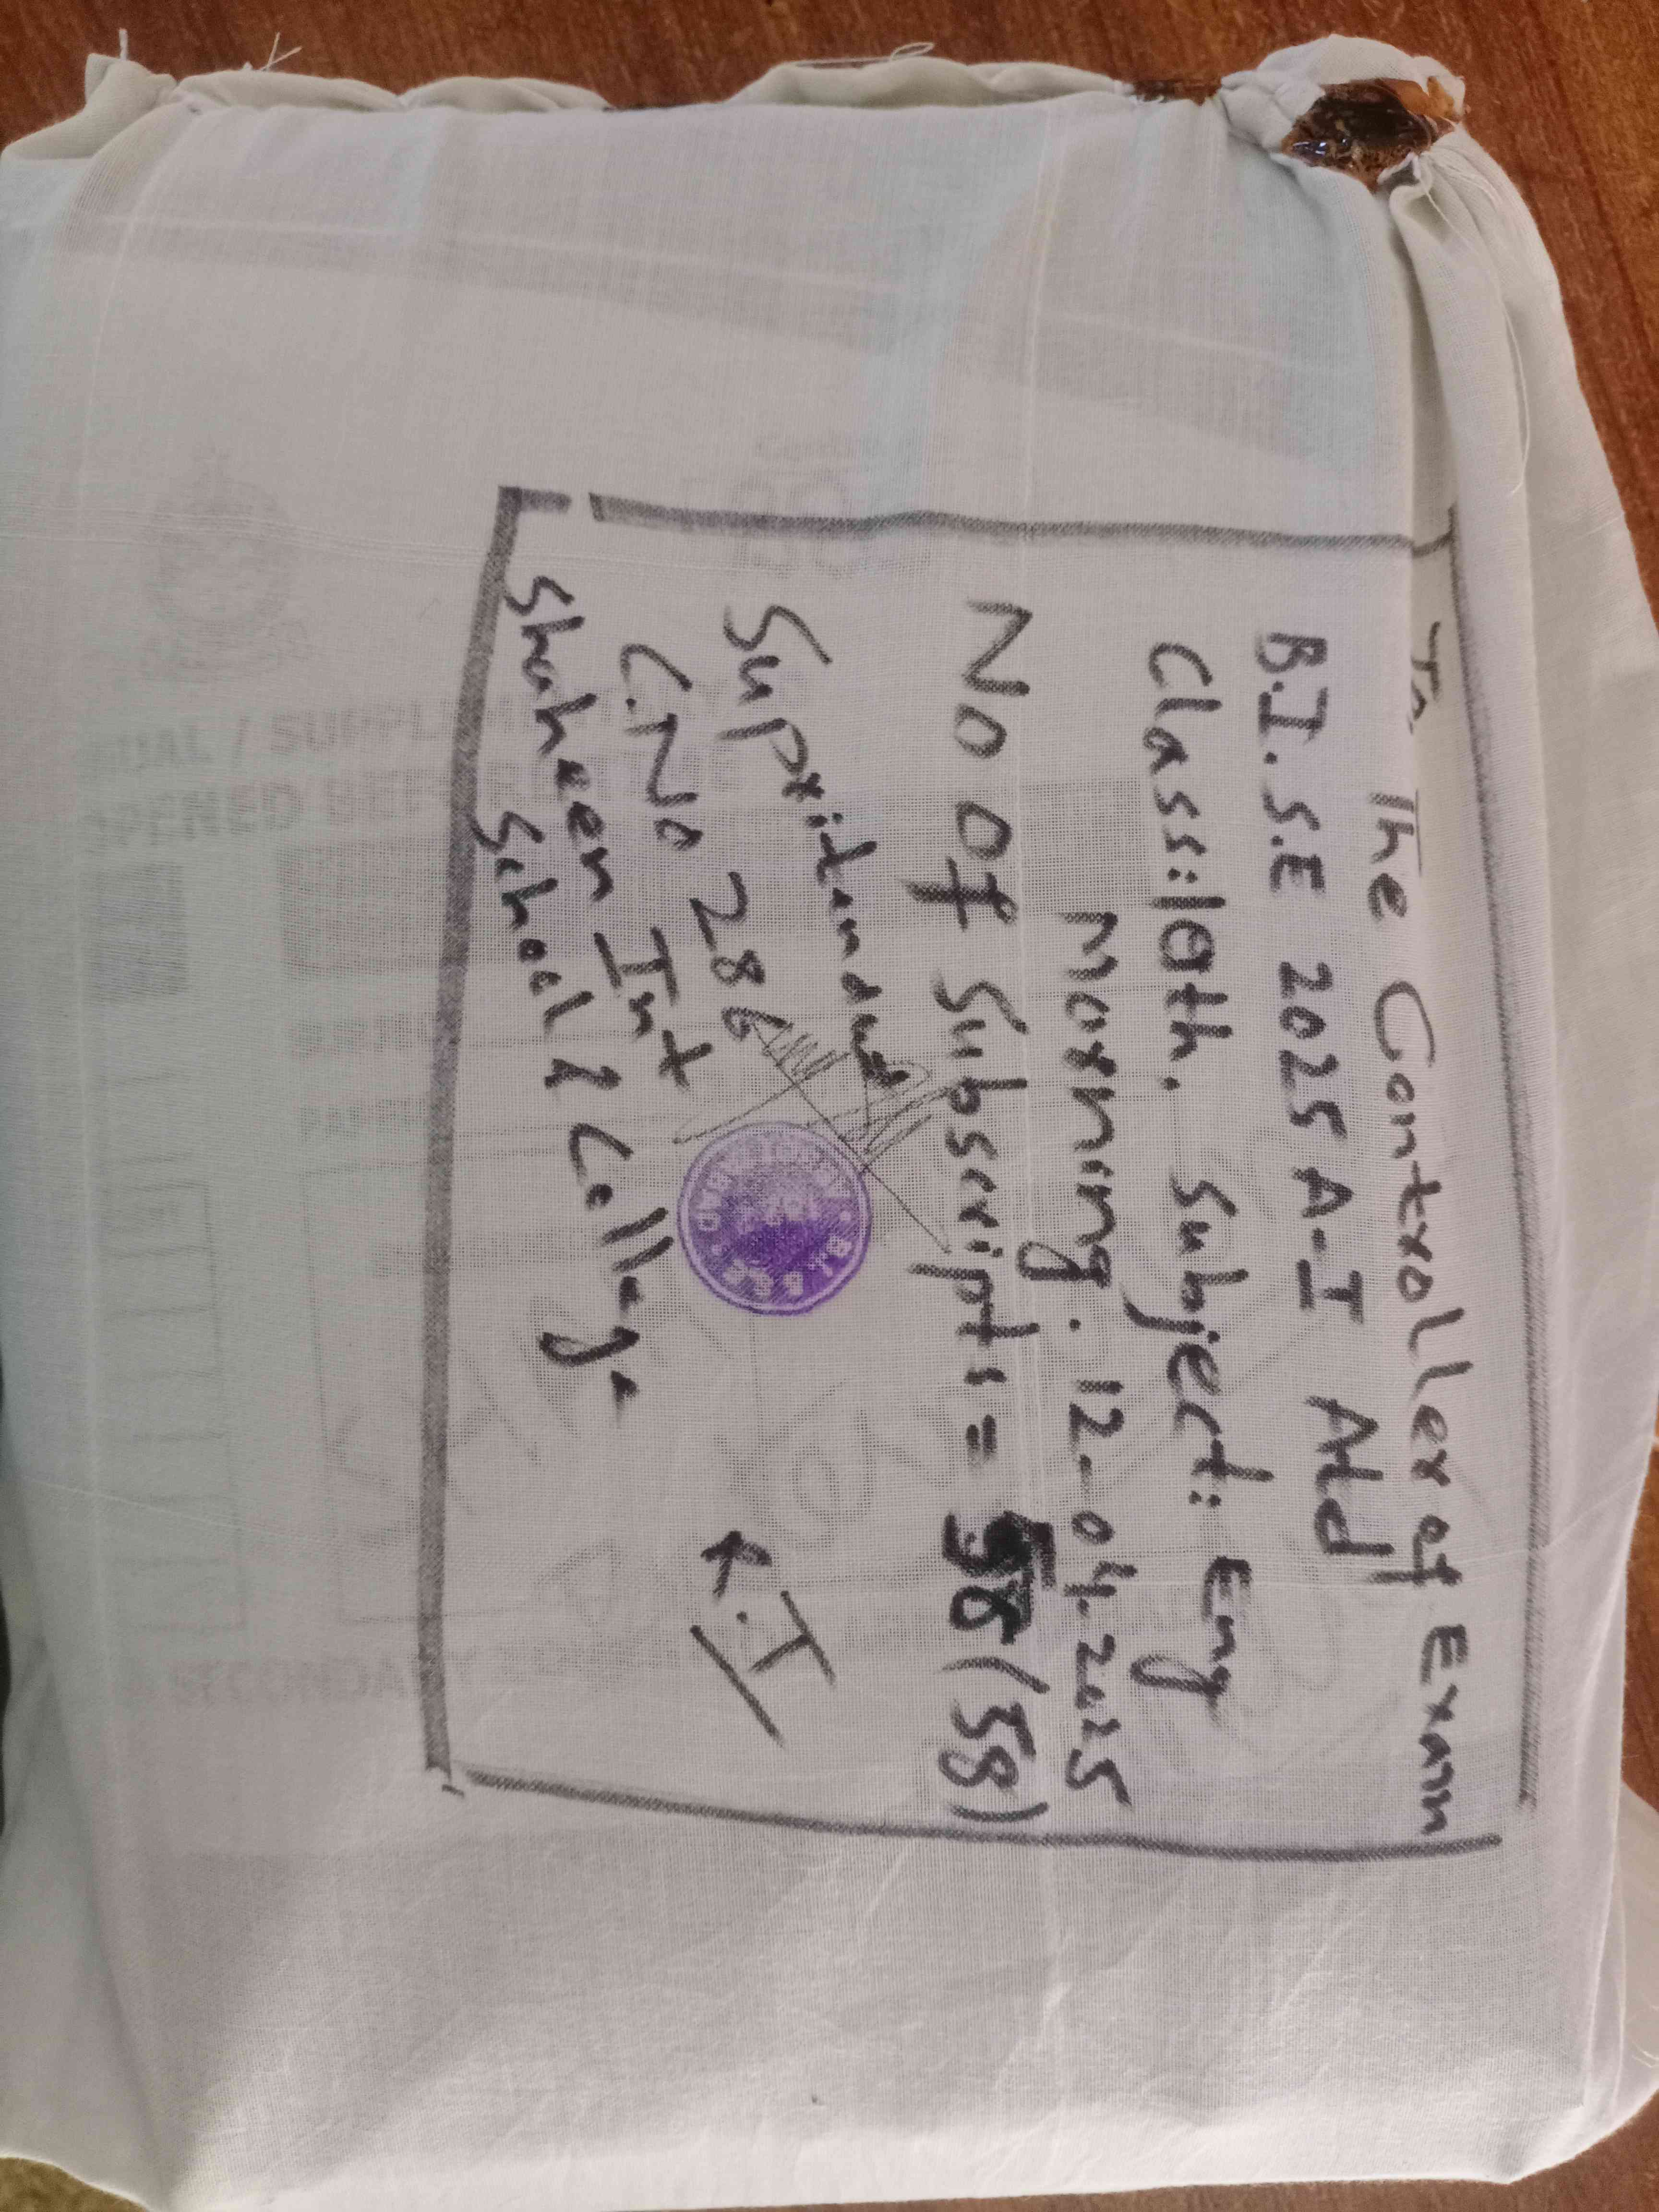 To, The Controller of Exam
B.I.S.E 2025 A-I Atd
Class:10th. Subject: Eng
Morning. 12-04.2025
No Of Subscripts = 58 (58)
Supritendent
C.No 286
K.I
Shaheen Int
School & College